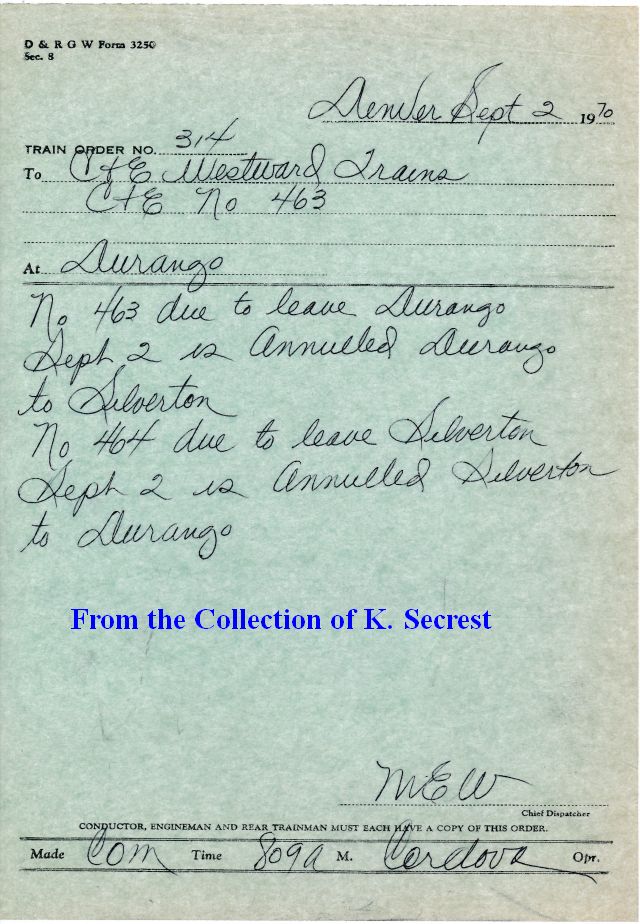 D & R G W Form 3250
Sec. 8
Denver Sept 2 1970
TRAIN ORDER NO. 314
To C+E Westward Trains
C+E No 463
At Durango
No 463 due to leave Durango
Sept 2 is Annulled Durango
to Silverton
No 464 due to leave Silverton
Sept 2 is Annulled Silverton
to Durango
From the Collection of K. Secrest
MEW
Chief Dispatcher
CONDUCTOR, ENGINEMAN AND REAR TRAINMAN MUST EACH HAVE A COPY OF THIS ORDER.
Made Com Time 809A M. Cordova Opr.